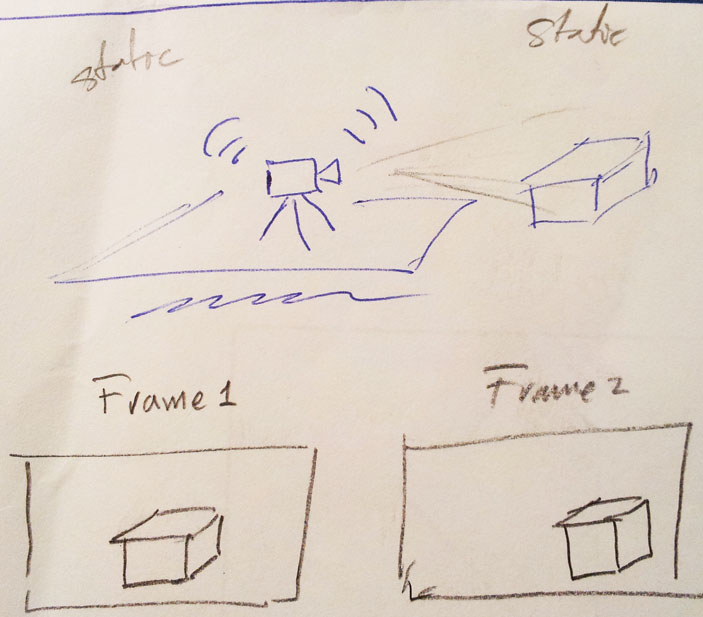 static
static
Frame 1
Frame 2